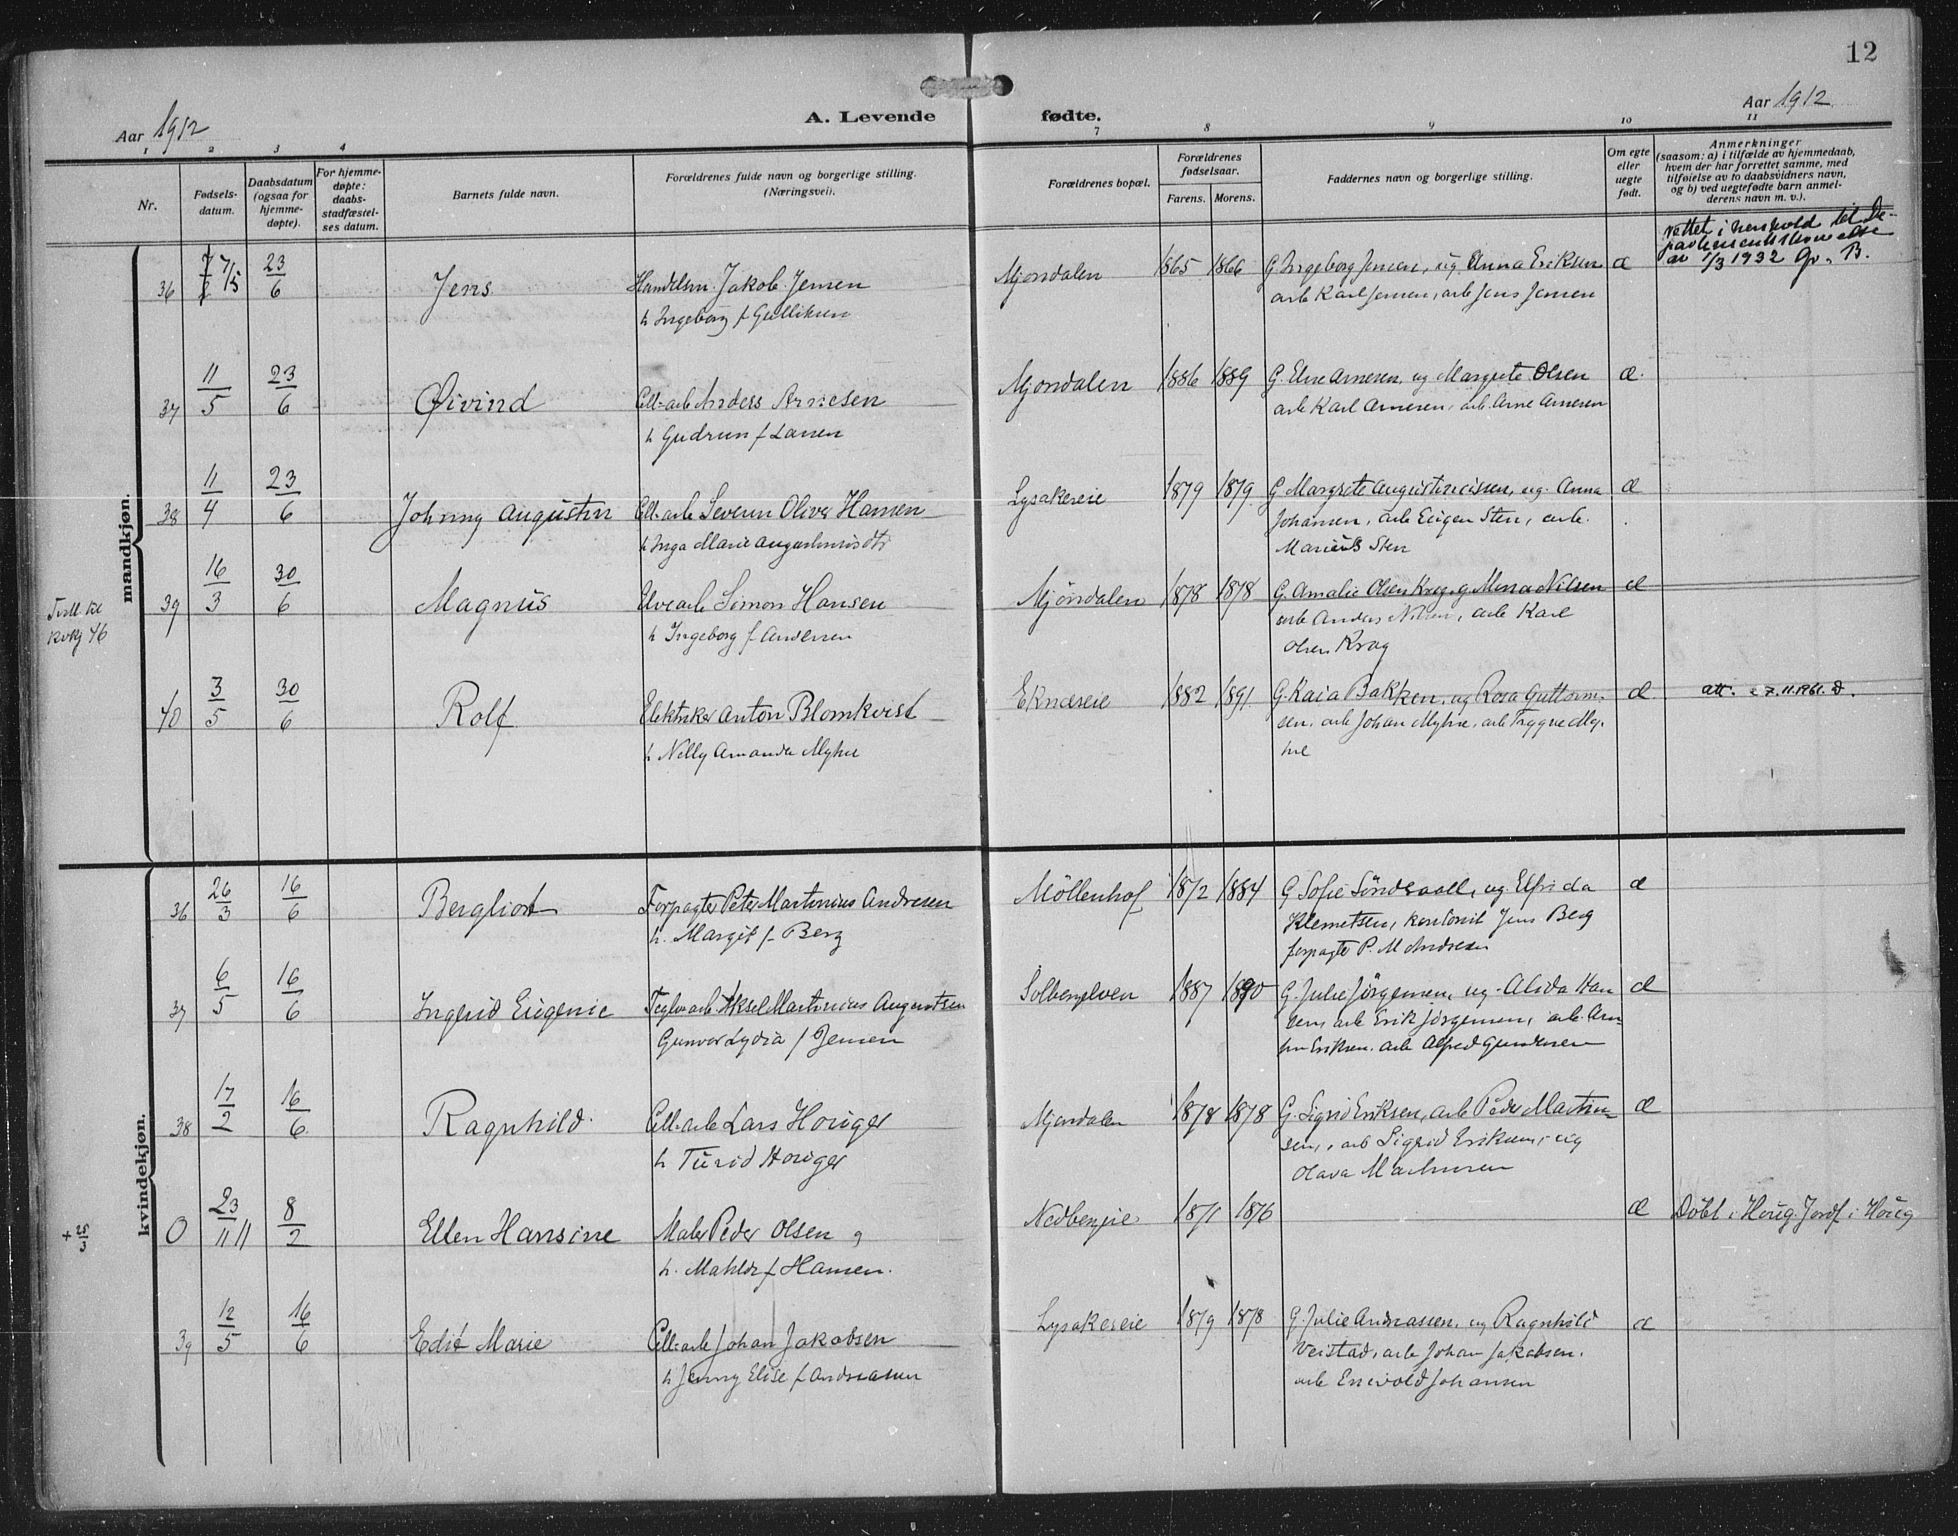 12
Aar 1912
A. Levende fødte.
Aar 1912
1 2 3 4 7 8 9 10 11
Nr.
Fødsels-
datum.
Daabsdatum
(ogsaa for
hjemme-
døpte).
For hjemme-
døpte:
daabs-
stadfæstel-
ses datum.
Barnets fulde navn.
Forældrenes fulde navn og borgerlige stilling.
(Næringsvei).
Forældrenes bopæl.
Forældrenes
fødselsaar.
Farens. Morens.
Faddernes navn og borgerlige stilling.
Om egte
eller
uegte
født.
Anmerkninger
(saasom: a) i tilfælde av hjemmedaab,
hvem der har forrettet samme, med
tilføielse av to daabsvidners navn,
og b) ved uegtefødte barn anmel-
derens navn m. v.).
mandkjøn.
36 7/5 23/6 Jens Jakob Jensen Mjøndalen 1865 1866 G Ingeborg Jensen, ug. Anna Eriksen æ
rettet i henhold til De-
av 1/3 1932 B.
h Ingeborg f Gulliksen arb Karl Jensen, arb Jens Jensen
37 11/5 23/6 Øivind Cell-arb Anders Arnesen Mjøndalen 1886 1889 G. Else Arnesen, ug Margrete Olsen æ
h Gudrun f Larsen arb Karl Arnesen, arb. Arne Arnesen
38 11/4 23/6 Johnny Augustin Cell-arb Severin Oliver Hansen Lysakereie 1879 1879 G Margrete ug. Anna æ
h Inga Marie Johansen, arb Eugen Sten, arb.
Marius Sten
39 16/3 30/6 Magnus Elvearb Simon Hansen Mjöndalen 1878 1878 G. Amalie Olsen Krog, Nilsen æ
h Ingeborg f Andersen arb Anders Nilsen, arb Karl
Olsen Krog
40 3/5 30/6 Rolf Elektriker Anton Blomkvist Eknæseie 1882 1891 G. Kaia Bakken, ug Rosa Guttorm- æ att. 27.11.1961. D.
h Nelly Amanda Myhre sen, arb Johan Myhre, arb Trygve My-
hre
kvindekjøn.
36 26/3 16/6 Bergliot Forpagter Peter Martinius Andresen Möllenhof 1872 1884 G Sofie ug. Elfrida æ
h. Margit f. Berg Klemetsen, kontorist Jens Berg
forpagter P. M Andresen
37 6/5 16/6 Ingrid Eugenie Teglv-arb. Aksel Martinius Augustsen Solbergelven 1887 1890 G. Julie Jörgensen, ug. Alida Han æ
Gunvor Lydia f Jensen sen, arb Erik Jörgensen, arb. Arn-
Eriksen, arb Alfred Gundersen
38 17/2 16/6 Ragnhild. Cell-arb Lars Horiger Mjøndalen 1878 1878 G. Sigrid Eriksen, arb Peder Martin- æ
h Turid Horiger sen, arb Sigrid Eriksen, ug
Olava Martinsen
+ 25/3 0 23/11 11 8/2 Ellen Hansine Maler Peder Olsen og Nedbergeie 1871 1876 æ Döbt i Houg. Jordf i Houg
h. Mathilde f Hansen.
39 12/5 16/6 Edit Marie Cell-arb Johan Jakobsen Lysakereie 1879 1878 G. Julie Andreassen, ug Ragnhild æ
h Jenny Elise f Andreasen Veistad, arb Johan Jakobsen,
arb Enevold Johansen